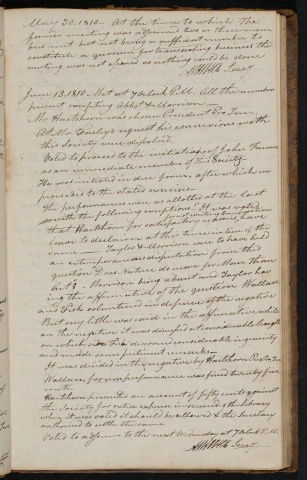 May 30. 1810. At the time to which the
former meeting was adjourned two or three mem
bers met but not being a sufficient number to
constitute a quorum for transacting business the
meeting was not opened as nothing could be done
Secy
June 13. 1810. Met at 7 oclock P.M. All the members
present excepting Abbot & Morrison
Mr Hartshorn was chosen President Pro Tem.
At Mr request his connexions with
this Society were dissolved.
Voted to proceed to the initiation of John
as an immediate member of this Society.
He was initiated in due form, after which we
proceeded to the stated exercises.
The performances were as allotted at the last
with the following exceptions. It was voted
that Hartshorn for satisfactory reasons, have
leave to declaim at this time in lieu of the
same Taylor & Morrison were to have held
an extemporaneous disputation from this
question "Does Nature do more for Man than
Art?" Morrison being absent and Taylor hav
ing the affirmative of the question Wallace
and Fisk volunteered in defence of the negative
But very little was said in the affirmative while
on the negative it was discussed at considerable length
on which side discovered considerable ingenuity
and made some pertinent remarks.
It was decided in the negative by Hartshorn Pr. Pro Tem
Wallace for nonperformance was fined twenty five
cents.
Hartshorn presented an account of fifty cents against
the Society for extra expense in the Library
when it was voted it should be allowed & the Secretary
authorized to settle the same
Voted to adjourn to the next Wednesday at 7 oclock P.M.
Secy